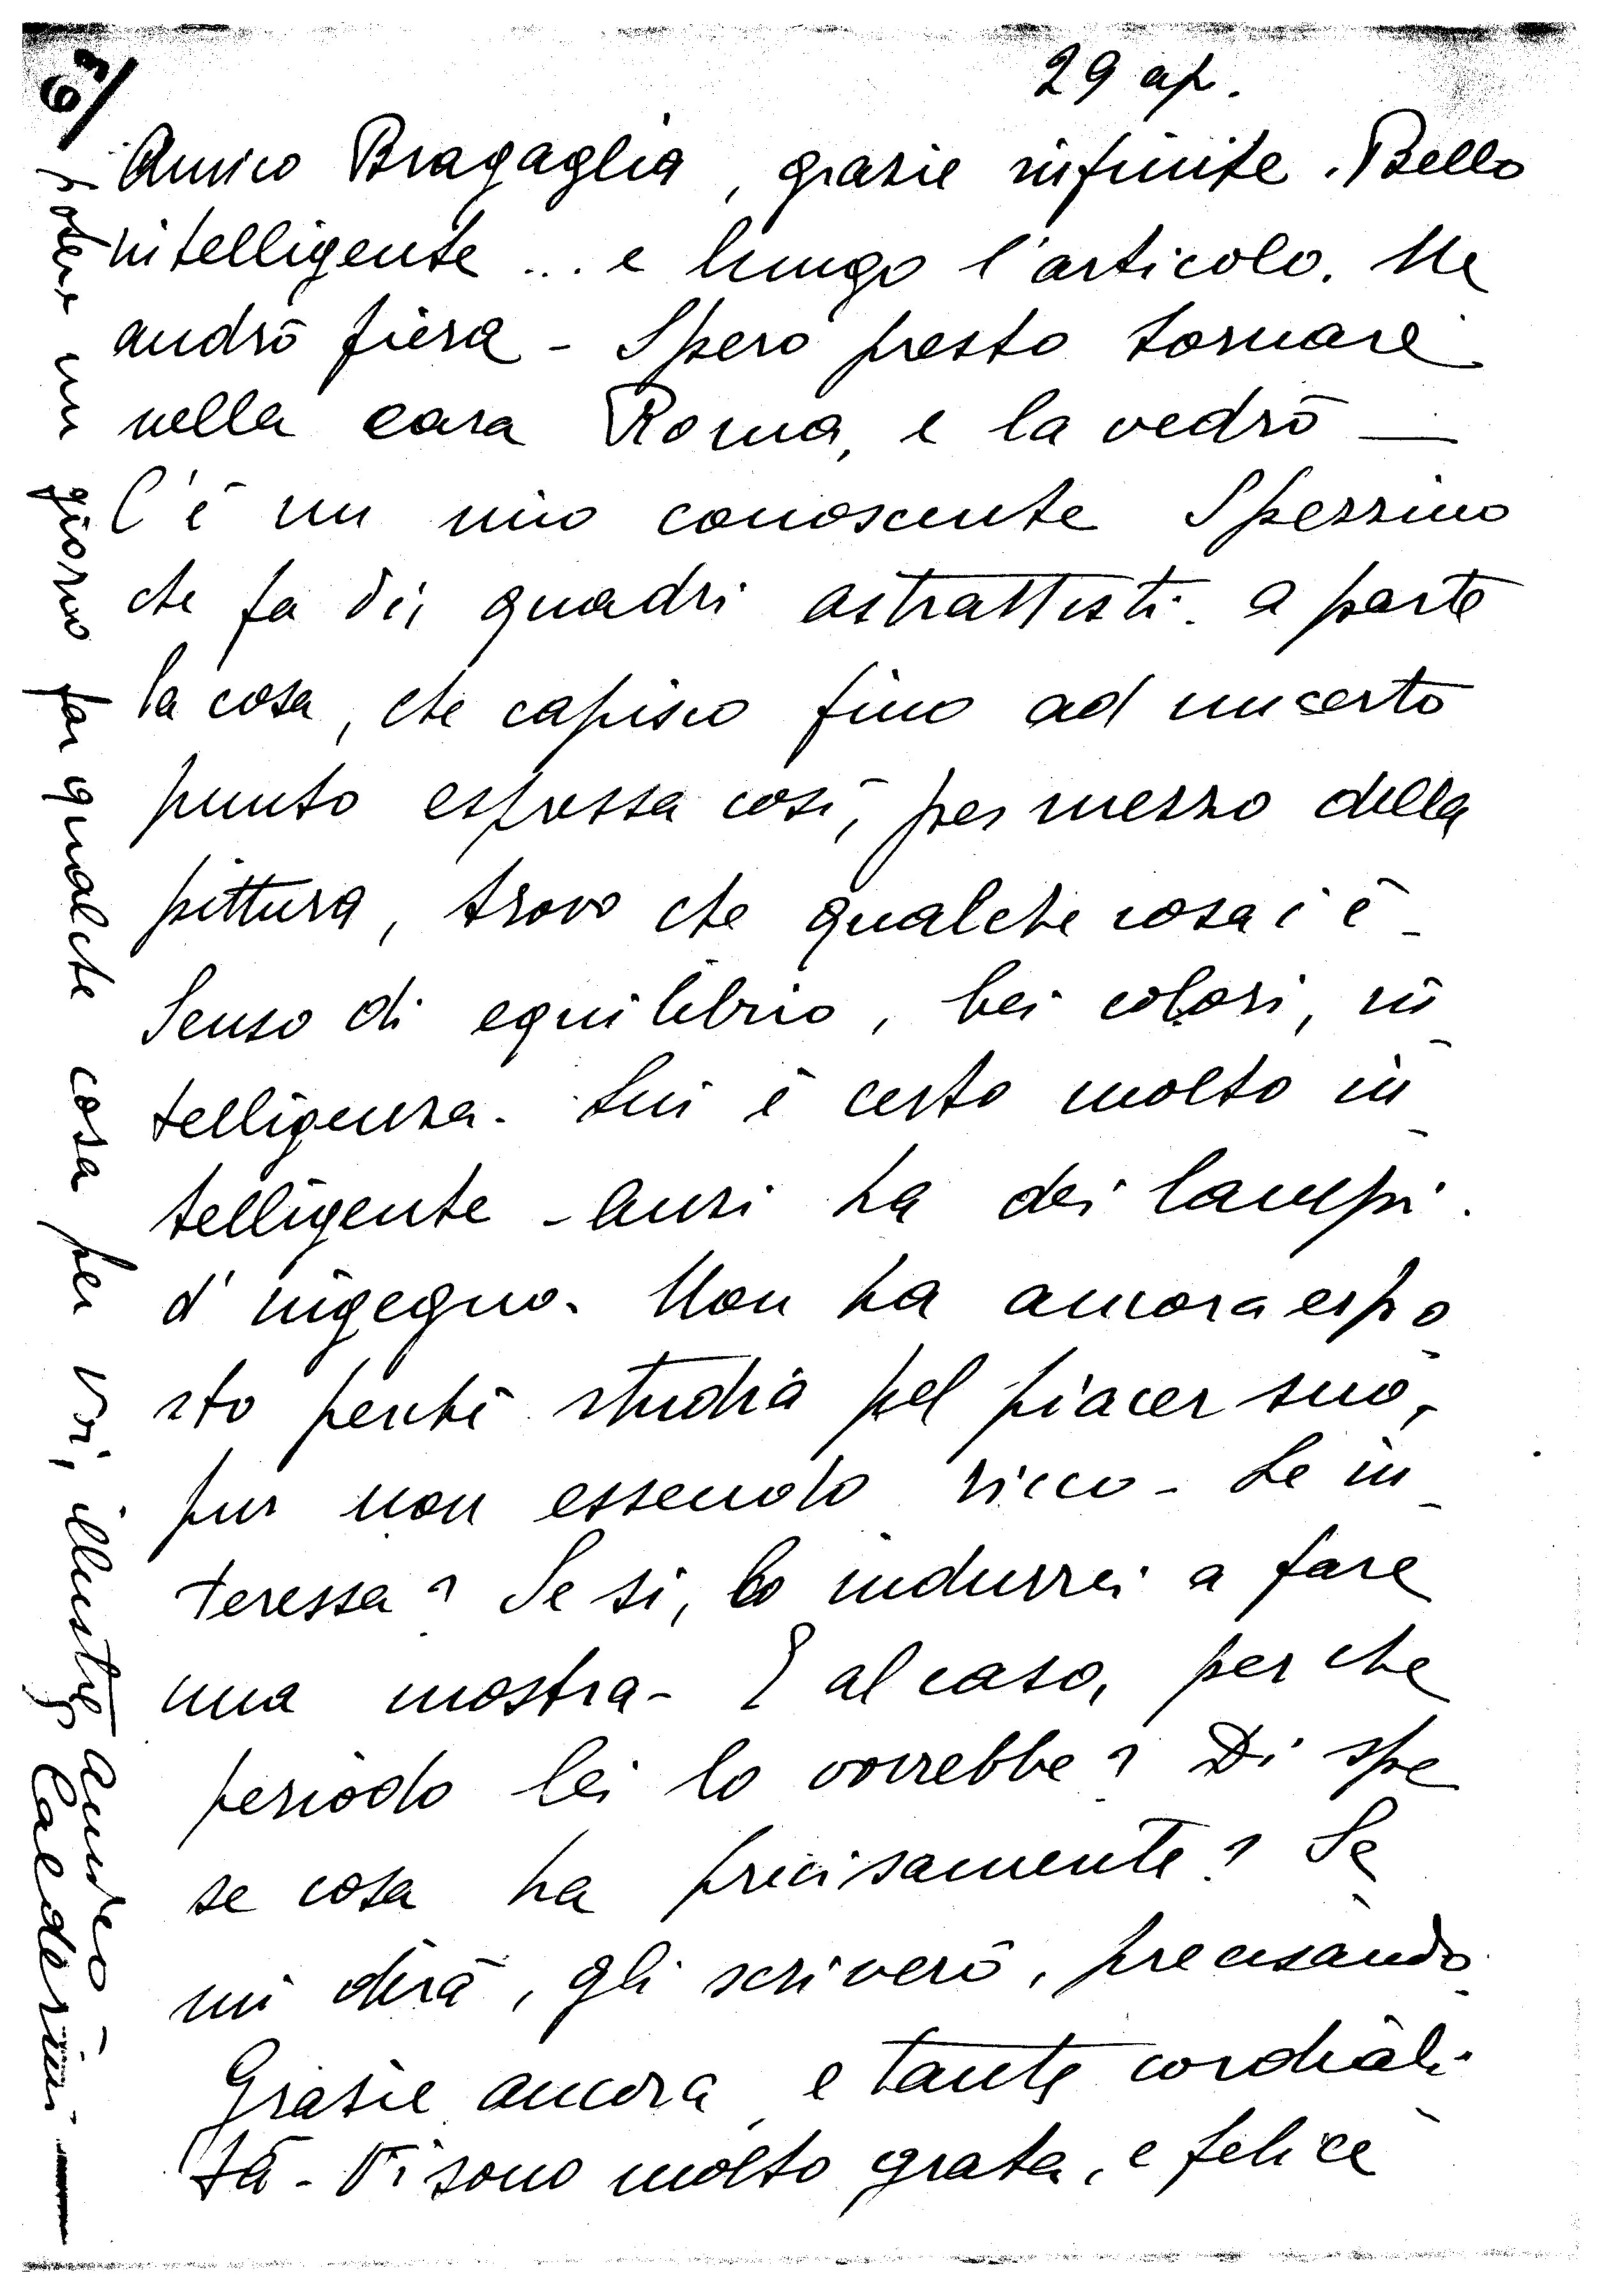 63/
29 ap.
Amico Bragaglia, grazie infinite. Bello
intelligente ... e lungo l'articolo. Ne
andrò fiera - Spero presto tornare
nella cara Roma, e la vedrò —
C'è un mio conoscente Spezzino
che fa dei quadri astrattisti. a parte
la cosa, che capisco fino ad un certo
punto espressa così, per mezzo della
pittura, trovo che qualche cosa c'è -
Senso di equilibrio, bei colori, in-
telligenza. Lui è certo molto in-
telligente - anzi ha dei lampi
d'ingegno. Non ha ancora espo-
sto perchè studia pel piacer suo,
pur non essendo ricco - Le in-
teressa? Se si, lo indurrei a fare
una mostra - E al caso, per che
periodo lei lo vorrebbe? Di spe
se cosa ha precisamente? Se
mi dirà, gli scriverò, precisando.
Grazie ancora, e tante cordiali-
tà - Vi sono molto grata, e felice
poter un giorno far qualche cosa per Voi, illustre amico
Calderini —